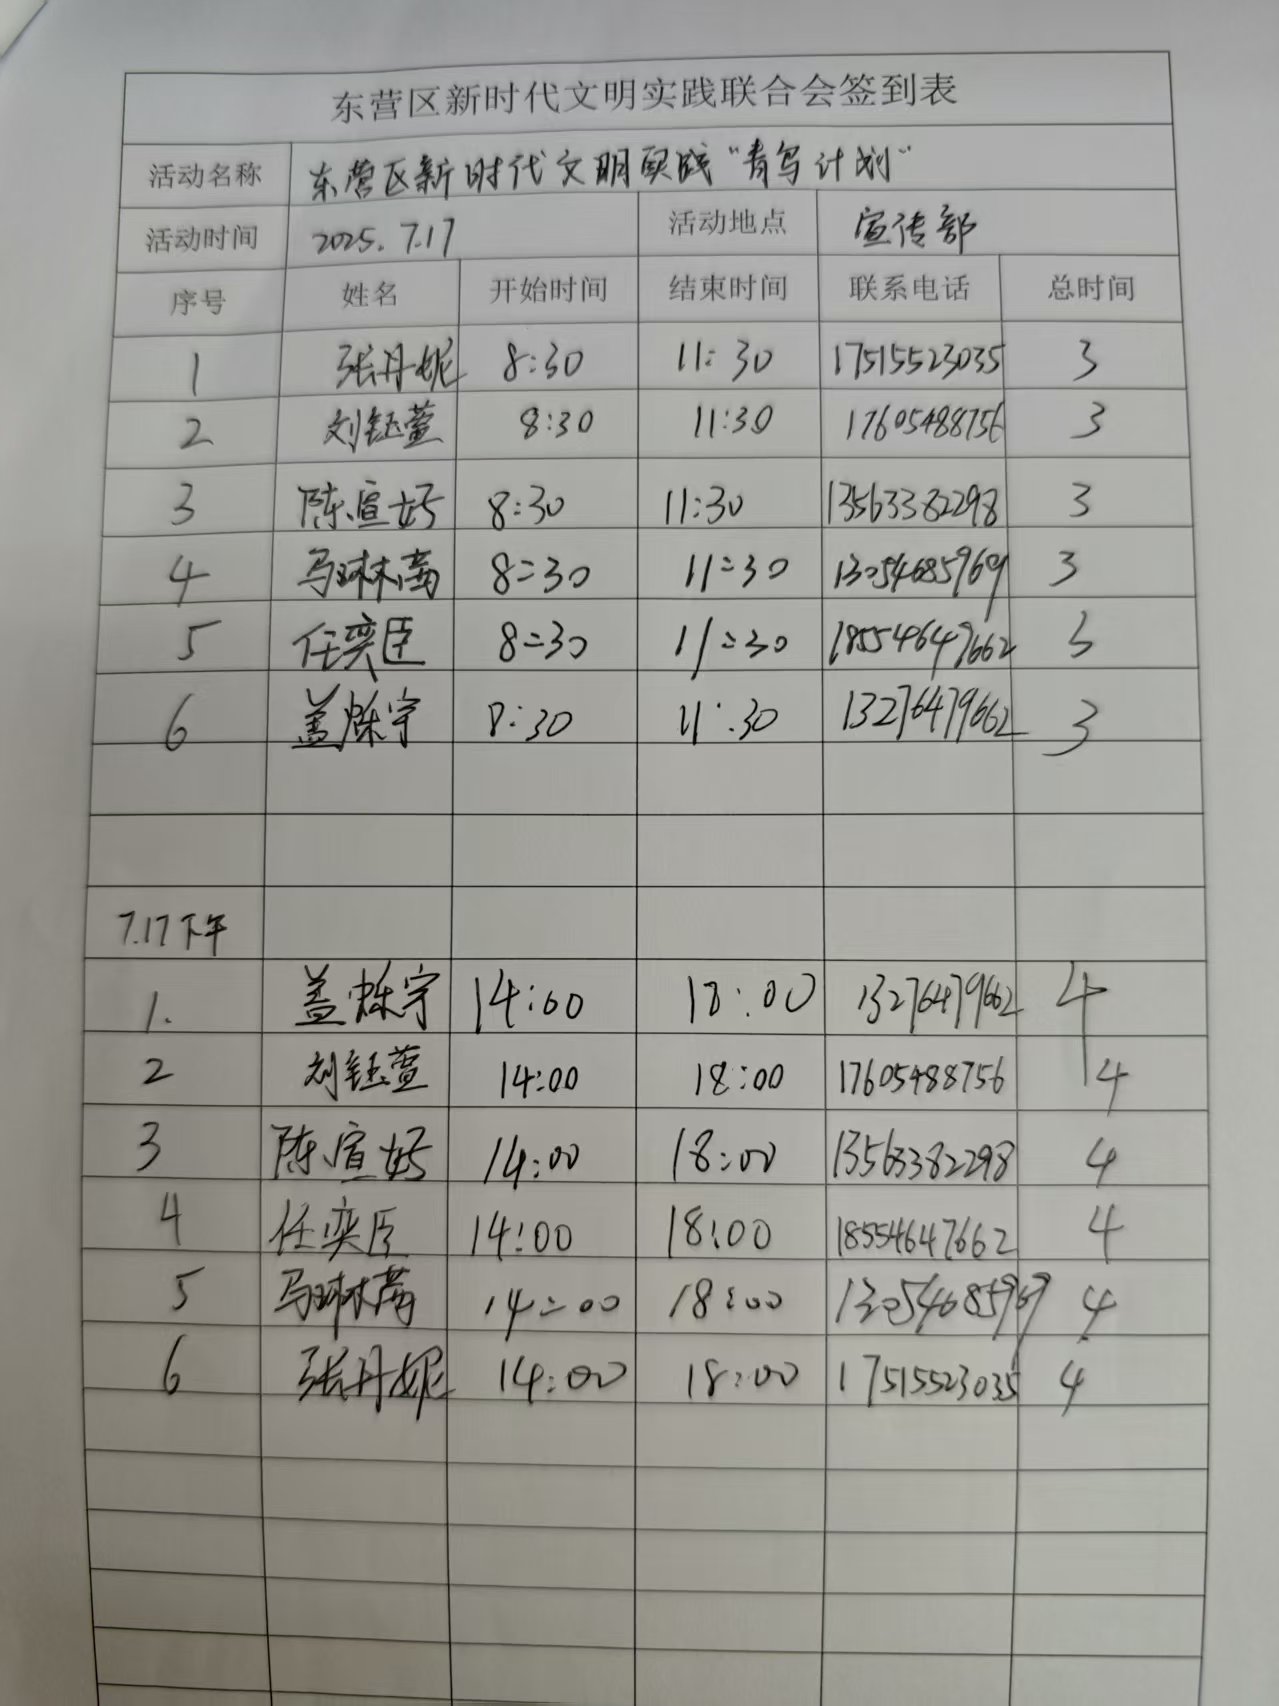 东营区新时代文明实践联合会签到表
活动名称 东营区新时代文明实践“青鸟计划”
活动时间 2025.7.17 活动地点 宣传部
序号 姓名 开始时间 结束时间 联系电话 总时间
1 张丹妮 8:30 11:30 17515523035 3
2 刘钰萱 8:30 11:30 17605488756 3
3 陈宣妤 8:30 11:30 13563382298 3
4 马琳 8:30 11:30 13054685969 3
5 任奕臣 8:30 11:30 18554647662 3
6 盖烁宇 8:30 11:30 13276479662 3
7.17下午
1. 盖烁宇 14:00 18:00 13276479662 4
2 刘钰萱 14:00 18:00 17605488756 4
3 陈宣妤 14:00 18:00 13563382298 4
4 任奕臣 14:00 18:00 18554647662 4
5 马琳 14:00 18:00 13054685969 4
6 张丹妮 14:00 18:00 17515523035 4